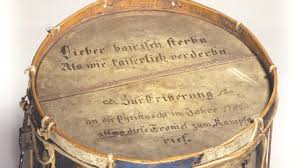 Lieber bairisch sterbn
Als wie kaiserlich verderbn.
Zur Erinerung
an die Christnacht im Jahre 1705
als diese Tromel zum Kampfe
rief.